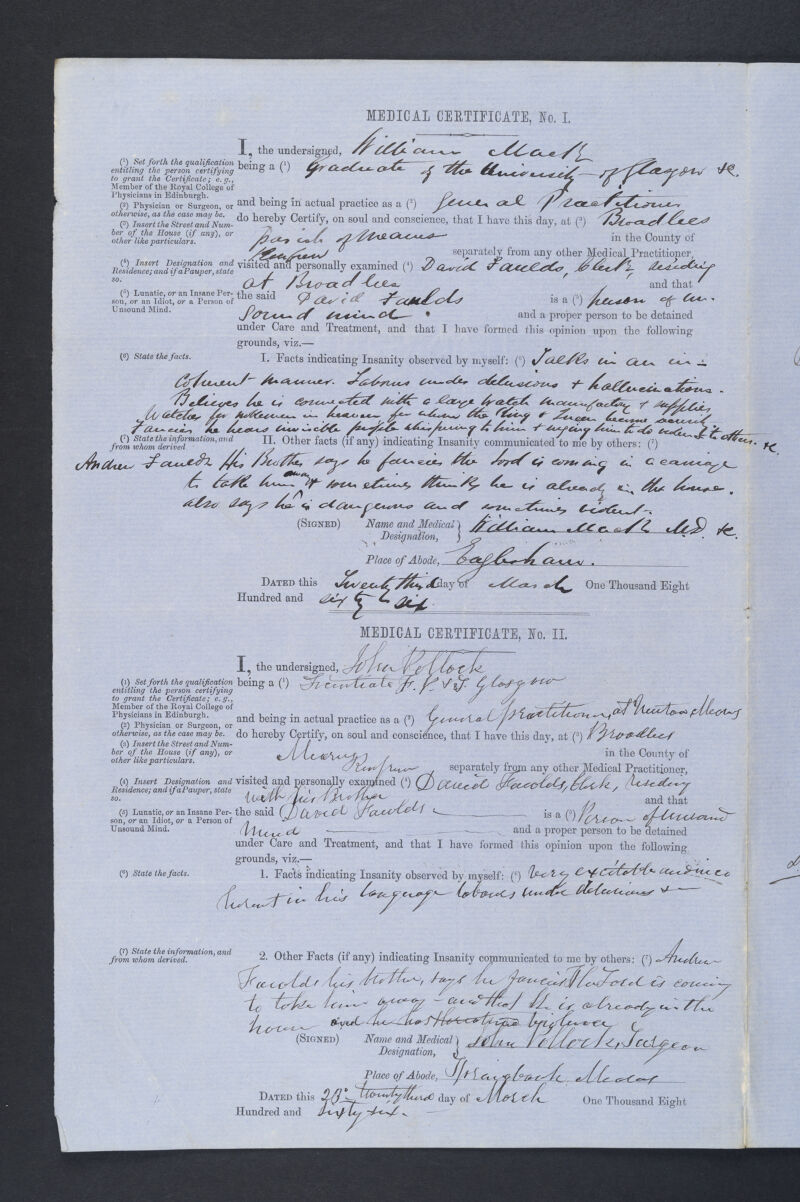 MEDICAL CERTIFICATE, No. I.
I, the undersigned, William Mack
(1) Set forth the qualification
entitling the person certifying
to grant the Certificate; e.g.,
Member of the Royal College of
Physicians in Edinburgh.
being a (1) Graduate of the University of Glasgow &c.
(2) Physician or Surgeon, or
otherwise, as the case may be.
and being in actual practice as a (2) General Practitioner
(3) Insert the Street and Num-
ber of the House (if any), or
other like particulars.
do hereby Certify, on soul and conscience, that I have this day, at (3) Broadlees
parish of Mearns in the County of
Renfrew separately from any other Medical Practitioner,
(4) Insert Designation and
Residence; and if a Pauper, state
so.
visited and personally examined (4) David Faulds, Clerk, residing
at Broadlees and that
(5) Lunatic, or an Insane Per-
son, or an Idiot, or a Person of
Unsound Mind.
the said David Faulds is a (5) person of un-
sound mind. and a proper person to be detained
under Care and Treatment, and that I have formed this opinion upon the following
grounds, viz.—
(6) State the facts.
1. Facts indicating Insanity observed by myself: (6) Talks in an in-
coherent manner. Labours under delusions & hallucinations.
Believes he is connected with a large watch manufactory & supplies
Watches for in heaven for whom the King & Queen become
Fancies he hears invisible people whispering to him & urging him to do to others. &c.
(7) State the information, and
from whom derived.
II. Other facts (if any) indicating Insanity communicated to me by others: (7)
Andrew Faulds His Brother says he fancies the Lord is coming in a carriage
to take him away & sometimes thinks he is already in the house.
also says he is dangerous and sometimes violent.
(SIGNED) Name and Medical Designation, William Mack M.D. &c.
Place of Abode, Eaglesham.
DATED this Twenty third day of March One Thousand Eight
Hundred and sixty six.
MEDICAL CERTIFICATE, No. II.
I, the undersigned, John Pollock
(1) Set forth the qualification
entitling the person certifying
to grant the Certificate; e.g.,
Member of the Royal College of
Physicians in Edinburgh.
being a (1) Licentiate F. P. & S. Glasgow
(2) Physician or Surgeon, or
otherwise, as the case may be.
and being in actual practice as a (2) General practitioner at Newton Mearns
(3) Insert the Street and Num-
ber of the House (if any), or
other like particulars.
do hereby Certify, on soul and conscience, that I have this day, at (3) Broadlees
Mearns in the County of
Renfrew separately from any other Medical Practitioner,
(4) Insert Designation and
Residence; and if a Pauper, state
so.
visited and personally examined (4) David Faulds, Clerk, residing
with his Brother and that
(5) Lunatic, or an Insane Per-
son, or an Idiot, or a Person of
Unsound Mind.
the said David Faulds is a (5) Person of unsound
Mind and a proper person to be detained
under Care and Treatment, and that I have formed this opinion upon the following
grounds, viz.—
(6) State the facts.
1. Facts indicating Insanity observed by myself: (6) Very excitable and inco
herent in his language labours under delusions &c
(7) State the information, and
from whom derived.
2. Other Facts (if any) indicating Insanity communicated to me by others: (7) Andrew
Faulds his brother, says he fancies The Lord is coming
to take him away — and that he is already in the
house and he has violence
(SIGNED) Name and Medical Designation, John Pollock, Surgeon
Place of Abode, Mearns
DATED this 23d twenty third day of March One Thousand Eight
Hundred and sixty six.